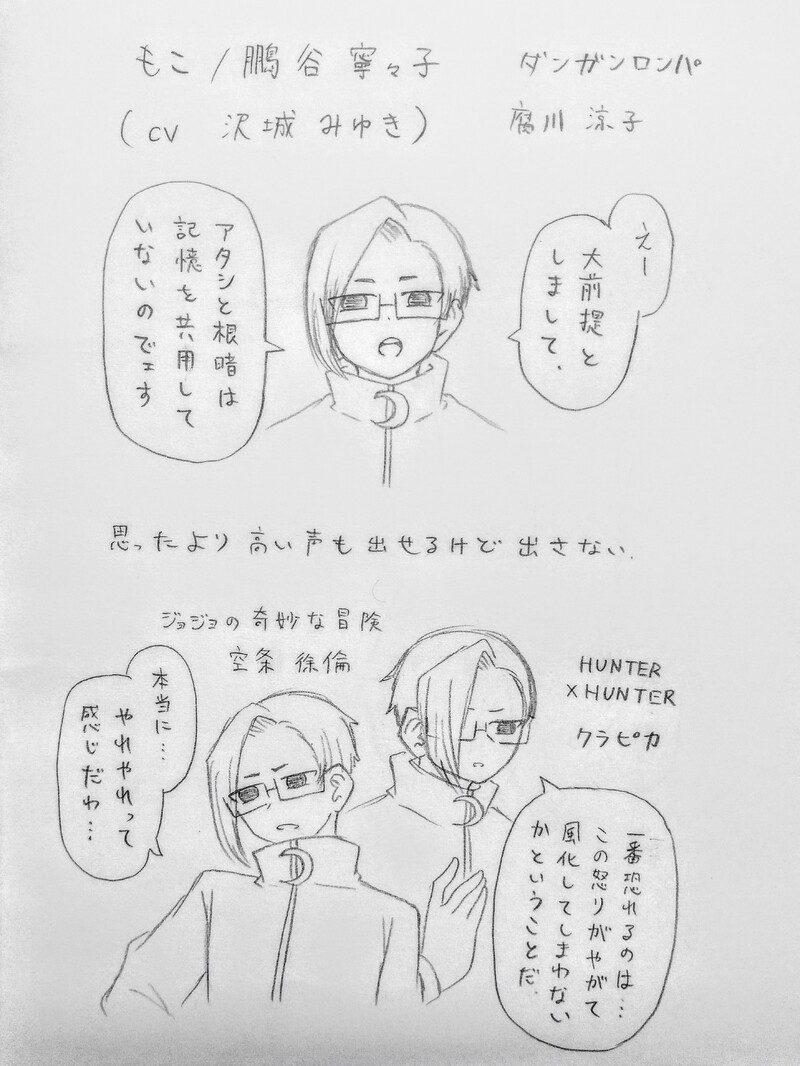 もこ/鵬谷寧々子
(CV 沢城みゆき)
ダンガンロンパ
腐川涼子
えー
大前提と
しまして、
アタシと根暗は
記憶を共用して
いないのでェす
思ったより高い声も出せるけど出さない.
ジョジョの奇妙な冒険
空条 徐倫
本当に…
やれやれって
感じだわ…
HUNTER
×HUNTER
クラピカ
一番恐れるのは…
この怒りがやがて
風化してしまわない
かということだ.